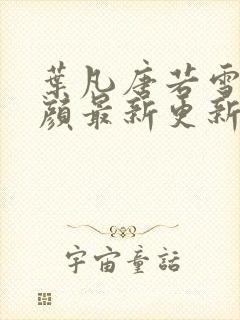 葉凡唐若雪
顏最新更新
宇宙童話